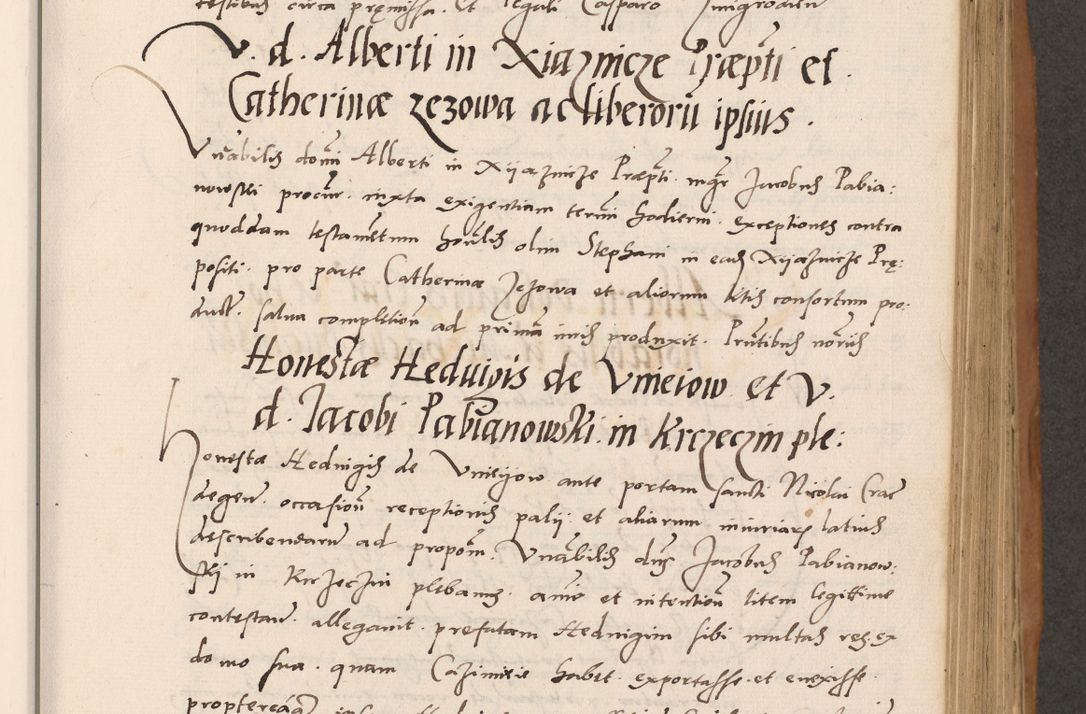 testibus circa pręmissa. Et legali Casparo
V. d. Alberti in Xiaznicze Præpti et
Catherinæ zezowa ac liberorũ ipsius.
Vnabilis domi Alberti in Xijaznicze Præpti. mgr Jacobus Pabia:
nowski procur. iuxta exigentiam termi hodierni. exceptiones contra
quoddam testamentum honlis olim Stephani in eadẽ Xijaznicze Prę:
positi. pro parte Catherinæ Zezowa et aliorum litis consortum pro:
duct. salua completioñ ad primã iuris produxit. Pñtibus nõriis
Honestæ Heduigis de Vnieiow et V.
d. Jacobi Pabianowski in Krczeczin ple:
Honesta Hedvigis de Vnieijow ante portam sancti Nicolai Crac
degeñ. occasioñ receptionis palii et aliarum iniuriarum latius
describendarũ ad propoñ. Vnabilis dñs Jacobus Pabianow:
skj in Krczeczin plebanus. aniõ et intentioñ litem legittime
contestañ. allegauit. prefatam Heduigim sibi multas res ex
domo sua. quam Cazimirie habet. exportasse et euexisse.